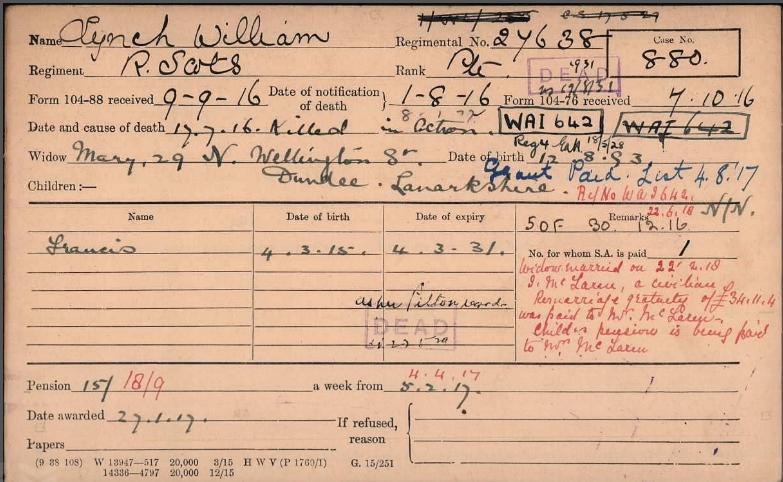 Name Lynch William
Regimental No. 27638
Case No.
880.
Regiment R. Scots
Rank Pte.
1931
DEAD
Form 104-88 received 9-9-16
Date of notification of death } 1-8-16
Form 104-76 received 7.10.16
Date and cause of death 17.7.16. Killed in Action.
WAI 642
WAI 642
18/5/28
Widow Mary, 29 N. Wellington St.
Date of birth 12.8.83
Grant Paid. List 4.8.17
Children :— Dundee. Lanarkshire.
Ref No WAI 642.
22.6.18 N/N.
Name
Date of birth
Date of expiry
Remarks
SOF 30.12.16
Francis
4.3.15.
4.3.31.
No. for whom S.A. is paid 1
Widow married on 22.2.18
J. McLaren, a civilian
Remarriage gratuity of £34.11.4
was paid to Mrs. McLaren
Child's pension is being paid
to Mrs McLaren
DEAD
Pension 15/ 18/9
a week from 5.2.17.
4.4.17
Date awarded 27.1.17.
If refused, reason
Papers
(9 38 108) W 13947—517 20,000 3/15 H W V (P 1760/1) G. 15/251
14336—4797 20,000 12/15